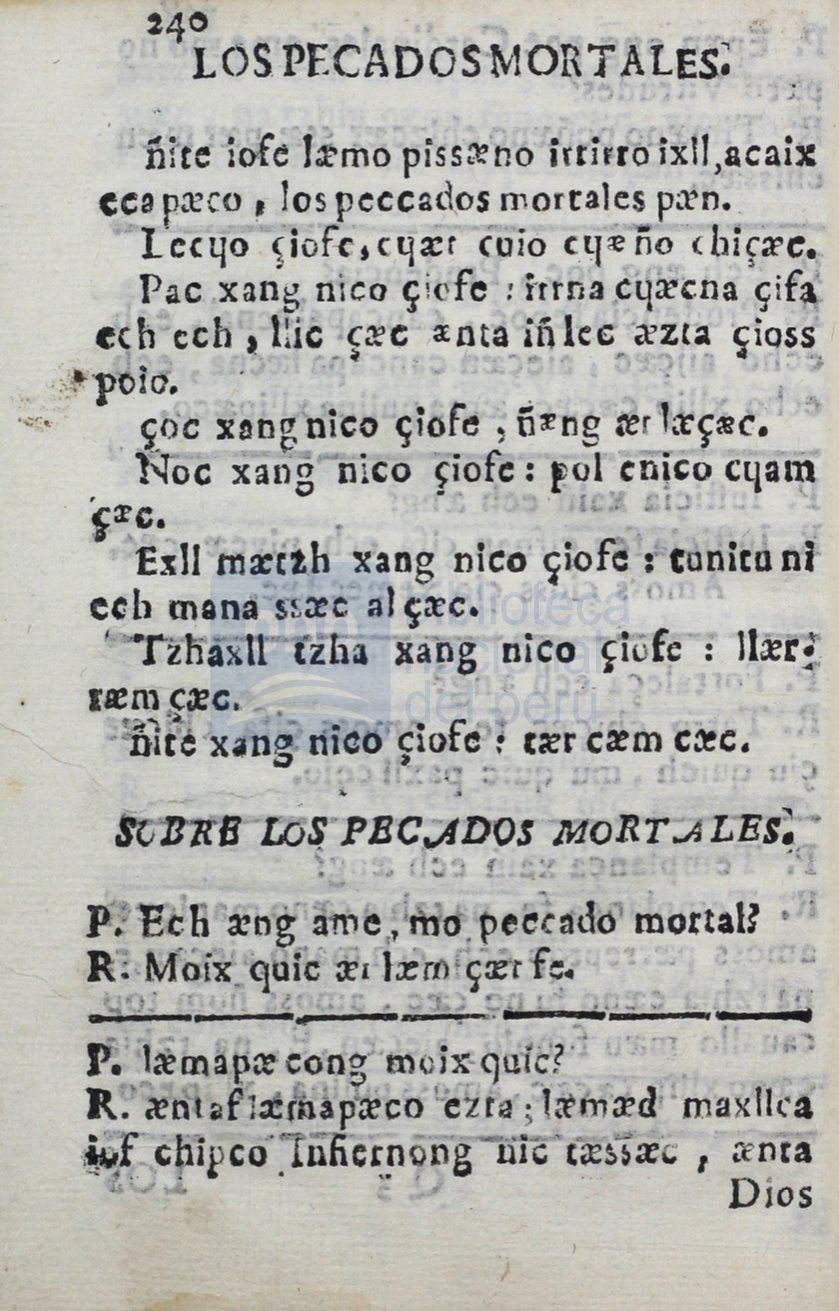 240
LOS PECADOS MORTALES.
ñite iofe læmo pissæno ittitto ixll, acaix
eca pæco, los peccados mortales pæn.
Lecɥo çiofe, cɥær cuio cɥæño chiçæc.
Pac xang nico çiofe : ittna cɥæcna çifa
ech ech, llic çæc ænta iñ lec æzta çioss
polo.
çoc xang nico çiofe, ñæng ær læçæc.
Noc xang nico çiofe : pol enico cɥam
çæc.
Exll mætzh xang nico çiofe : tunituni
ech mana ssæc al çæc.
Tzhaxll tzha xang nico çiofe : llær-
ræm çæc.
ñite xang nico çiofe : tær cæm cæc.
SOBRE LOS PECADOS MORTALES.
P. Ech æng ame, mo peccado mortal?
R. Moix quic ær læm çær fe.
P. læmapæcong moix quic?
R. æntaf læmapæco ezta; læmæd maxllca
iof chipco Infiernong nic tæssæc, ænta
Dios
biblioteca
nacional
del perú